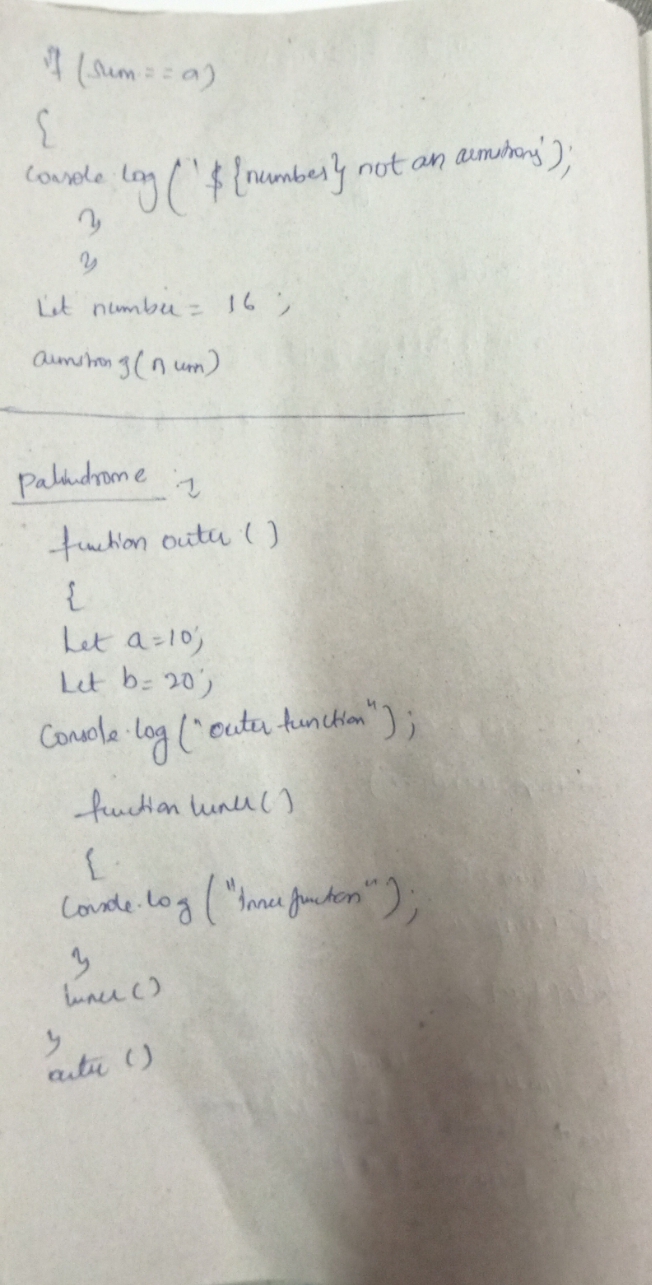 if (sum == a)
{
console.log('${number} not an armstrong');
}
}
Let number = 16;
armstrong(num)
Palindrome :-
function outer ()
{
Let a=10;
Let b= 20;
Console.log("outer function");
function inner()
{
Console.log ("Inner function");
}
inner()
}
outer ()